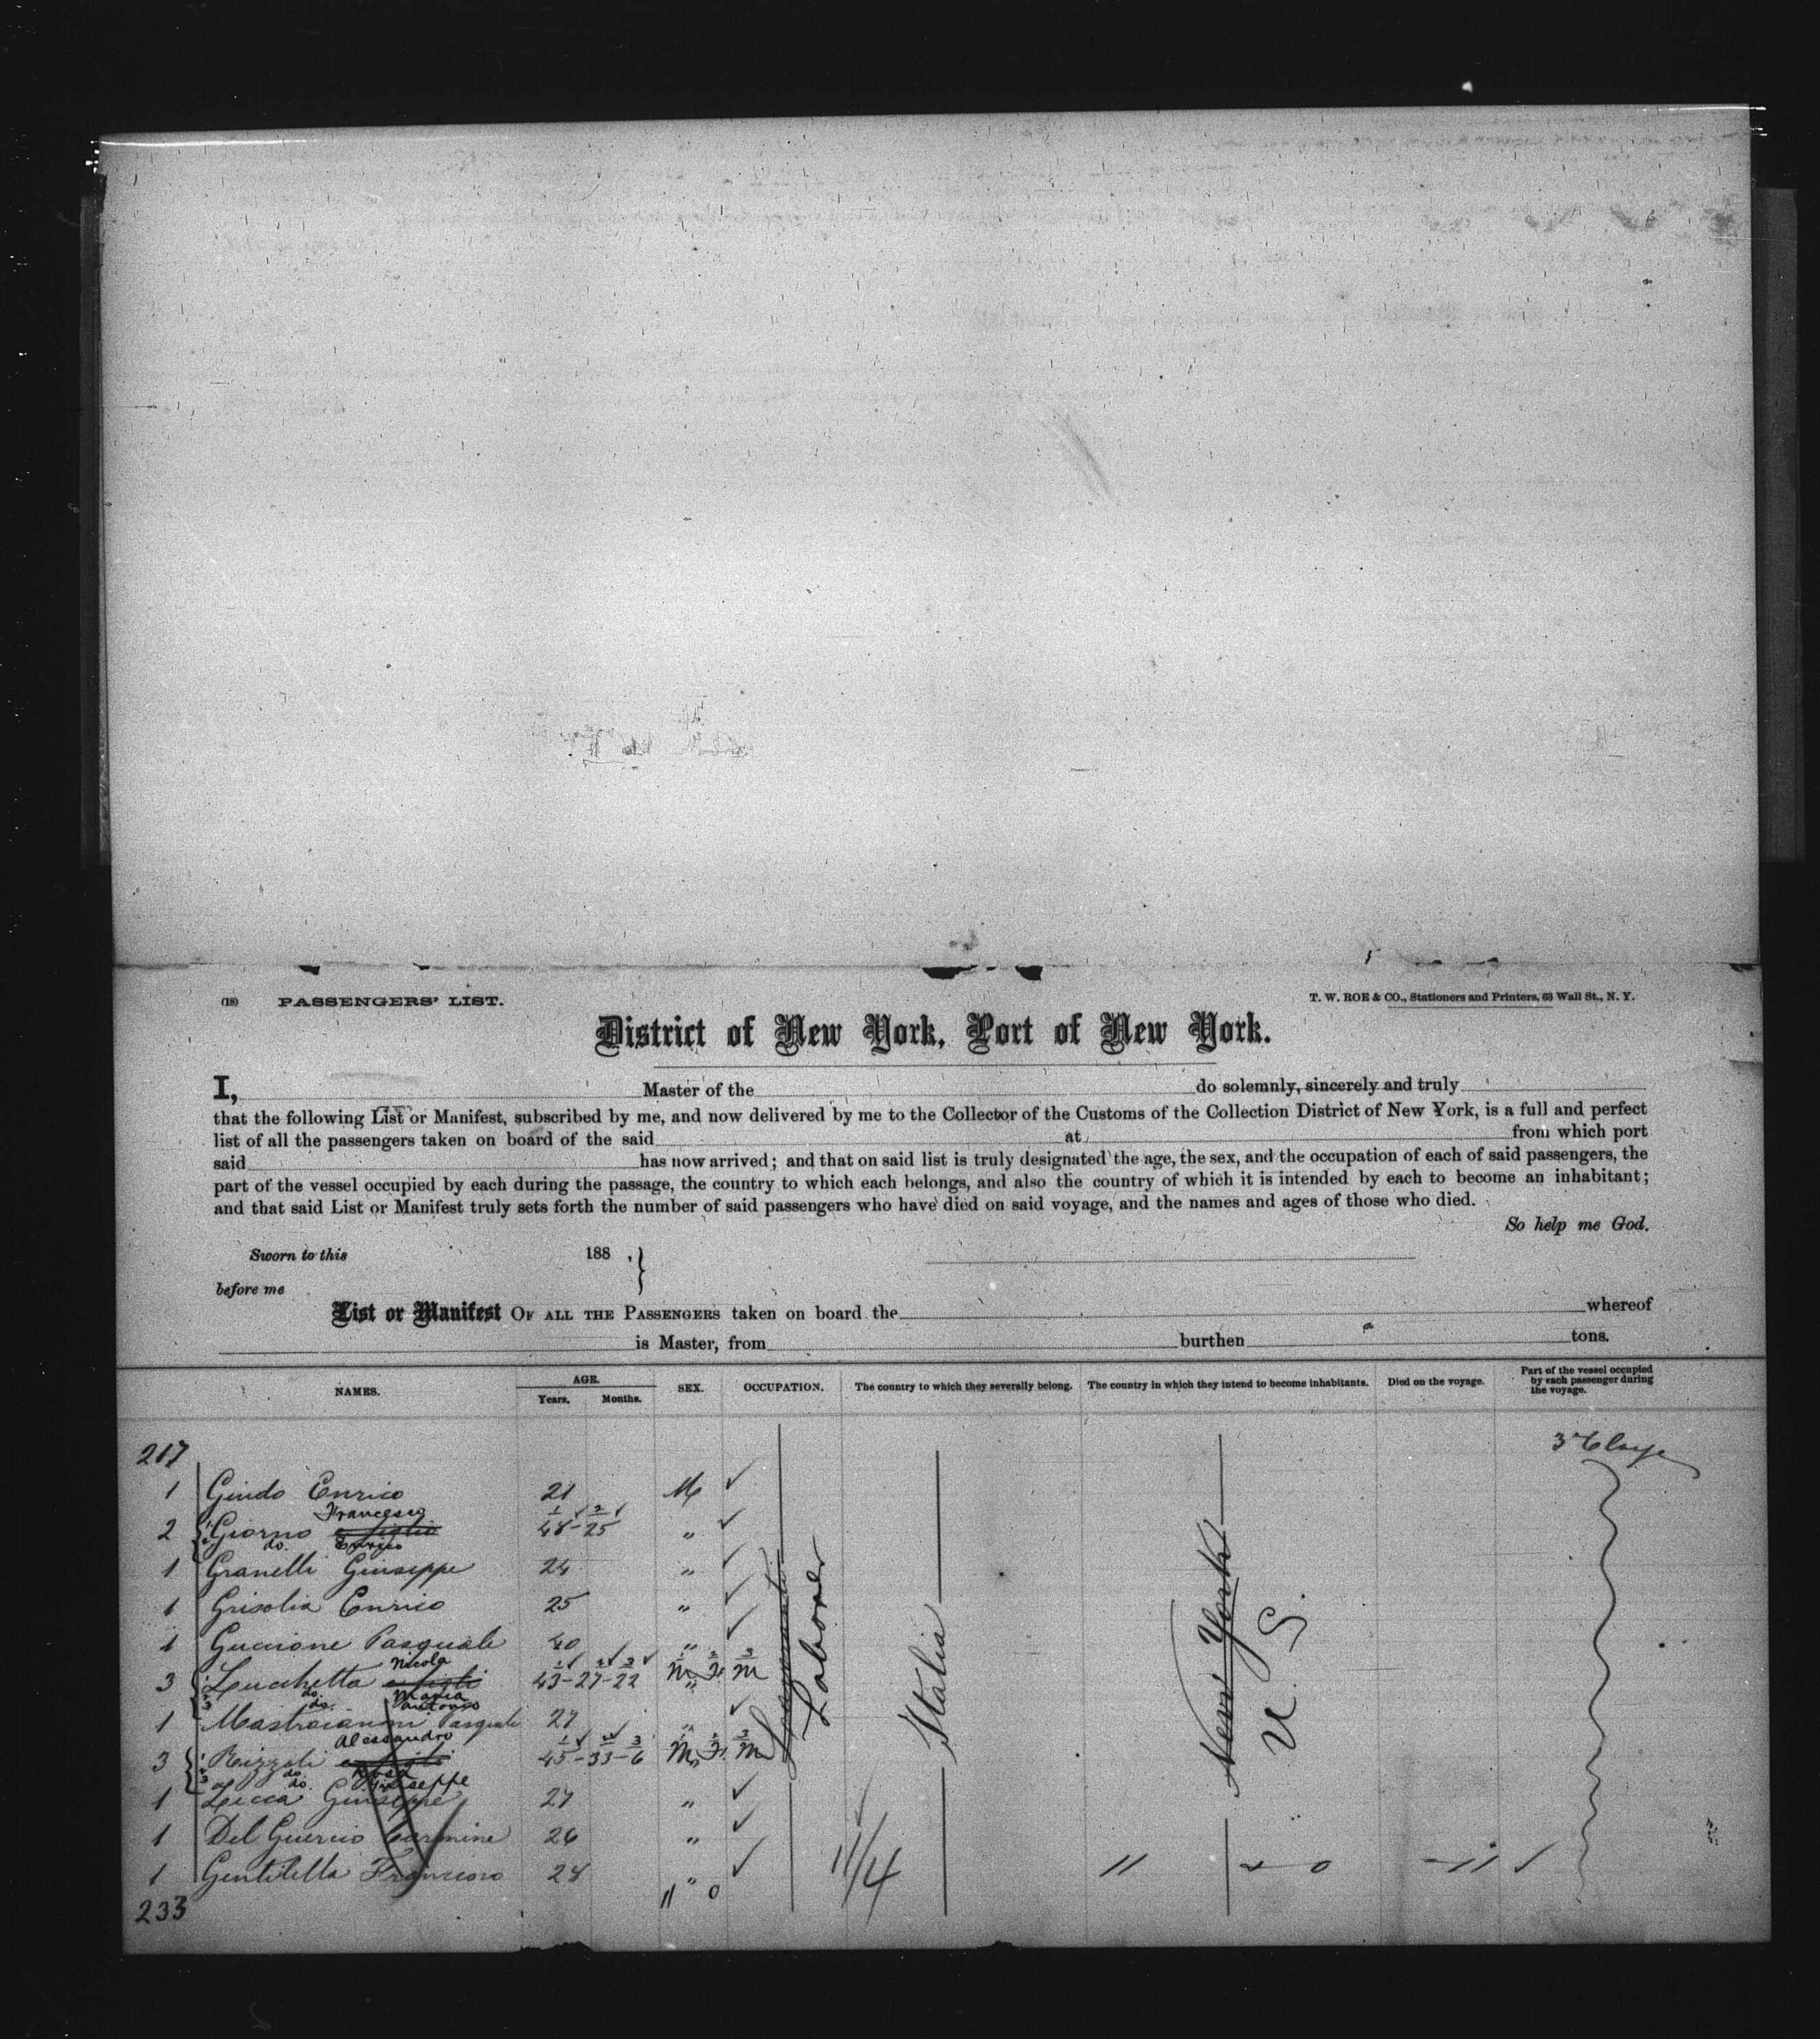 (18) PASSENGERS' LIST. T. W. ROE & CO., Stationers and Printers, 63 Wall St., N. Y.
District of New York, Port of New York.
I, Master of the do solemnly, sincerely and truly
that the following List or Manifest, subscribed by me, and now delivered by me to the Collector of the Customs of the Collection District of New York, is a full and perfect
list of all the passengers taken on board of the said at from which port
said has now arrived; and that on said list is truly designated the age, the sex, and the occupation of each of said passengers, the
part of the vessel occupied by each during the passage, the country to which each belongs, and also the country of which it is intended by each to become an inhabitant;
and that said List or Manifest truly sets forth the number of said passengers who have died on said voyage, and the names and ages of those who died.
So help me God.
Sworn to this 188 .
before me
List or Manifest OF ALL THE PASSENGERS taken on board the whereof
is Master, from burthen tons.
NAMES. AGE. Years. Months. SEX. OCCUPATION. The country to which they severally belong. The country in which they intend to become inhabitants. Died on the voyage. Part of the vessel occupied by each passenger during the voyage.
217
1 Guido Enrico 21 M
Francesco
2 Giorno e figlio 48-25 "
do. Enrico
1 Granelli Giuseppe 24 "
1 Grisolia Enrico 25 "
1 Guccione Pasquale 40 "
Nicola
3 Lucchetta e figli 43-27-22 M F. M
do. Maria
do. Antonio
1 Mastroianni Pasquale 27 "
Alessandro
3 Rizzoli 45-33-6 M F. M
do. Rosa
do. Giuseppe
1 Lecca Giuseppe 27 "
1 Del Guercio Carmine 26 "
1 Gentilella Francesco 28 "
233
11 0
Laborer
Italia
11/4
New York
U. S.
11 0
11